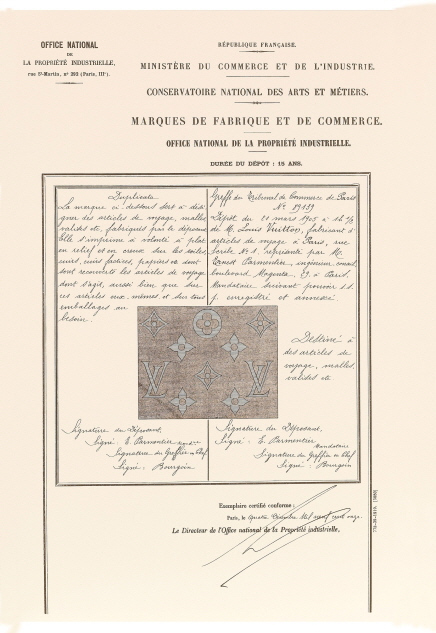 OFFICE NATIONAL
DE
LA PROPRIÉTÉ INDUSTRIELLE,
rue St-Martin, n° 292 (Paris, IIIe).
RÉPUBLIQUE FRANÇAISE.
MINISTÈRE DU COMMERCE ET DE L'INDUSTRIE.
CONSERVATOIRE NATIONAL DES ARTS ET MÉTIERS.
MARQUES DE FABRIQUE ET DE COMMERCE.
OFFICE NATIONAL DE LA PROPRIÉTÉ INDUSTRIELLE.
DURÉE DU DÉPOT : 15 ANS.
Duplicata
La marque ci-dessous sert à dési
gner des articles de voyage, malles
valises etc, fabriqués par le déposant
Elle s'imprime à volonté à plat
en relief et en creux sur les toiles
cuirs, cuirs factices, papiers etc dont
sont recouverts les articles de voyage
dont s'agit, aussi bien que sur
ces articles eux mêmes et sur tous
emballages au
besoin.
Greffe du Tribunal de Commerce de Paris
No
Dépôt du 21 mars 1905 à
de M. Louis Vuitton, fabricant d'
articles de voyage à Paris, rue
Scribe No 1. représenté par Mr
Ernest Parmentier, ingénieur conseil
boulevard Magenta, à Paris.
Mandataire suivant pouvoir s.s.
p. enregistré et annexé.
LV
LV
Destiné à
des articles de
voyage, malles,
valises etc
Signature du Déposant,
Signé : E. Parmentier
Signature du Greffier en Chef
Signé : Bourgoin
Signature du Déposant,
Signé : E. Parmentier
Mandataire
Signature du Greffier en Chef
Signé : Bourgoin
Exemplaire certifié conforme :
Paris, le quatre Mil neuf cent onze.
Le Directeur de l'Office national de la Propriété industrielle,